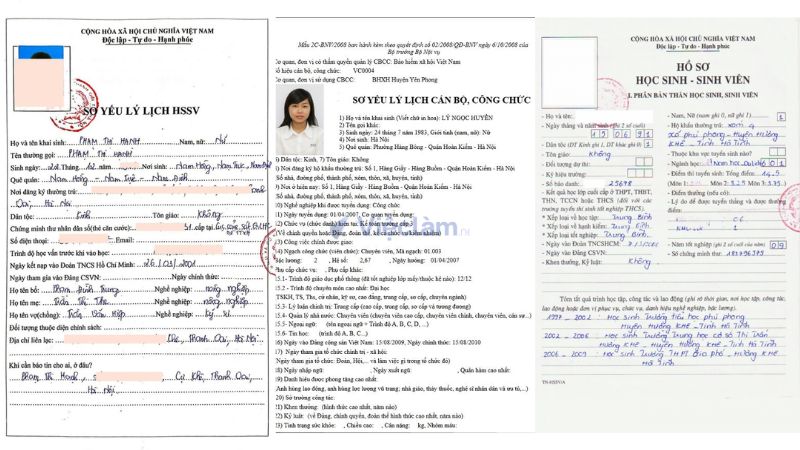 CỘNG HÒA XÃ HỘI CHỦ NGHĨA VIỆT NAM
Độc lập - Tự do - Hạnh phúc
SƠ YẾU LÝ LỊCH HSSV
Họ và tên khai sinh: PHẠM THỊ HẠNH Nam, nữ: Nữ
Tên thường gọi: PHẠM THỊ HẠNH
Sinh ngày: Nơi sinh: Nam Hồng, Nam Trực, Nam Định
Quê quán: Nam Hồng - Nam Trực - Nam Định
Nơi đăng ký thường trú:
Oai, Hà Nội
Dân tộc: Kinh Tôn giáo: Không
Chứng minh thư nhân dân số(thẻ căn cước):
Số điện thoại: Email:
Trình độ học vấn trước khi vào học:
Ngày kết nạp vào Đoàn TNCS Hồ Chí Minh: 26/03/2001
Ngày tham gia vào Đảng CSVN: Ngày chính thức:
Họ tên bố: Phạm Đình Trung Nghề nghiệp: nông nghiệp
Họ tên mẹ: Trần Thị Thu Nghề nghiệp: nông nghiệp
Họ tên vợ(chồng): Trần Văn Hiệp Nghề nghiệp: kỹ sư
Đối tượng thuộc diện chính sách:
Địa chỉ liên lạc: Thanh Oai, Hà Nội
Khi cần báo tin cho ai, ở đâu?
Phạm Thị Hạnh, Cự Khê, Thanh Oai,
Hà Nội
Mẫu 2C-BNV/2008 ban hành kèm theo quyết định số 02/2008/QĐ-BNV ngày 6/10/2008 của
Bộ trưởng Bộ Nội vụ
Cơ quan, đơn vị có thẩm quyền quản lý CBCC: Bảo hiểm xã hội Việt Nam
Số hiệu cán bộ, công chức: VC0004
Cơ quan, đơn vị sử dụng CBCC: BHXH Huyện Yên Phong
SƠ YẾU LÝ LỊCH CÁN BỘ, CÔNG CHỨC
1) Họ và tên khai sinh (Viết chữ in hoa): LÝ NGỌC HUYỀN
2) Tên gọi khác:
3) Sinh ngày: 24 tháng 7 năm 1983, Giới tính (nam, nữ): Nữ
4) Nơi sinh: Hà Nội
5) Quê quán: Phường Hàng Bông - Quận Hoàn Kiếm - Hà Nội
6) Dân tộc: Kinh, 7) Tôn giáo: Không
8) Nơi đăng ký hộ khẩu thường trú: Số 1, Hàng Giấy - Hàng Buồm - Quận Hoàn Kiếm - Hà Nội
(Số nhà, đường phố, thành phố, xóm, thôn, xã, huyện, tỉnh)
9) Nơi ở hiện nay: Số 1, Hàng Giấy - Hàng Buồm - Quận Hoàn Kiếm - Hà Nội
(Số nhà, đường phố, thành phố, xóm, thôn, xã, huyện, tỉnh)
11) Ngày tuyển dụng: 01/04/2007, Cơ quan tuyển dụng:
12) Chức vụ (chức danh) hiện tại:
(Về chính quyền hoặc Đảng, đoàn thể, kể cả chức vụ kiêm nhiệm)
13) Công việc chính được giao:
14) Ngạch công chức (viên chức): Chuyên viên, Mã ngạch: 01.003
Bậc lương: 2, Hệ số: 2,67, Ngày hưởng: 01/04/2007
Phụ cấp chức vụ: , Phụ cấp khác:
15.1- Trình độ giáo dục phổ thông (đã tốt nghiệp lớp mấy/thuộc hệ nào): 12/12
15.2 - Trình độ chuyên môn cao nhất: Đại học
(TSKH, TS, Ths, cử nhân, kỹ sư, cao đẳng, trung cấp, sơ cấp, chuyên ngành)
15.3- Lý luận chính trị: Trung cấp (cao cấp, trung cấp, sơ cấp và tương đương)
15.4- Quản lý nhà nước: Chuyên viên (chuyên viên cao cấp, chuyên viên chính, chuyên viên, cán sự,...)
15.5- Ngoại ngữ: (tên ngoại ngữ + Trình độ A, B, C, D, ...)
15.6- Tin học: (Trình độ A, B, C,...)
16) Ngày vào Đảng cộng sản Việt Nam: 15/08/2009, Ngày chính thức: 15/08/2010
17) Ngày tham gia tổ chức chính trị - xã hội:
(Ngày tham gia tổ chức: Đoàn, Hội,... và làm việc gì trong tổ chức đó)
18) Ngày nhập ngũ: , Ngày xuất ngũ: , Quân hàm cao nhất:
19) Danh hiệu được phong tặng cao nhất:
(Anh hùng lao động, anh hùng lực lượng vũ trang; nhà giáo, thầy thuốc, nghệ sĩ nhân dân và ưu tú,...)
20) Sở trường công tác:
21) Khen thưởng: (hình thức cao nhất, năm nào)
22) Kỷ luật: (về Đảng, chính quyền, đoàn thể hình thức cao nhất, năm nào)
23) Tình trạng sức khoẻ: , Chiều cao: , Cân nặng: kg, Nhóm máu:
CỘNG HÒA XÃ HỘI CHỦ NGHĨA VIỆT NAM
Độc lập - Tự do - Hạnh phúc
HỒ SƠ
HỌC SINH - SINH VIÊN
I. PHẦN BẢN THÂN HỌC SINH, SINH VIÊN
• Họ và tên: • Nam, Nữ (nam ghi 0, nữ ghi 1) 1
• Ngày tháng và năm sinh (ghi 2 số cuối) • Hộ khẩu thường trú: xóm 4
150691 Xã phú phong - Huyện Hương
• Dân tộc (DT Kinh ghi 1, DT khác ghi 0) 1 Khê - Tỉnh Hà Tĩnh
• Tôn giáo: Không • Thuộc khu vực tuyển sinh nào?
• Đối tượng dự thi: • Ngành học:
• Ký hiệu trường: • Điểm thi tuyển sinh: Tổng điểm: 14.5
• Số báo danh: 25698
• Kết quả học lớp cuối cấp ở THPT, THBT, • Điểm thưởng (nếu có):
THN, TCCN hoặc THCS (đối với các • Lý do để được tuyển thẳng và được thưởng
trường tuyển thí sinh tốt nghiệp THCS): điểm:
* Xếp loại về học tập: Trung Bình
* Xếp loại về hạnh kiểm:
* Xếp loại tốt nghiệp: Trung Bình
• Ngày vào ĐoànTNCSHCM: • Năm tốt nghiệp (ghi 2 số cuối của năm) 09
• Ngày vào Đảng CSVN: • Số chứng minh thư:
- Khen thưởng, Kỷ luật: Không
Tóm tắt quá trình học tập, công tác và lao động (ghi rõ thời gian, nơi học tập, công tác,
lao động hoặc đơn vị phục vụ, chức vụ, danh hiệu nghề nghiệp, bậc lương).
1997 - 2002 : Học sinh Trường tiểu học phú phong
Huyện Hương Khê - Tỉnh Hà Tĩnh
2002 - 2006 : Học sinh Trường Trung học cơ sở Thị Trấn
Hương Khê - Huyện Hương Khê - Tỉnh Hà Tĩnh
2006 - 2009 : Học sinh Trường THPT Gia phố - Huyện Hương Khê
Hà Tĩnh